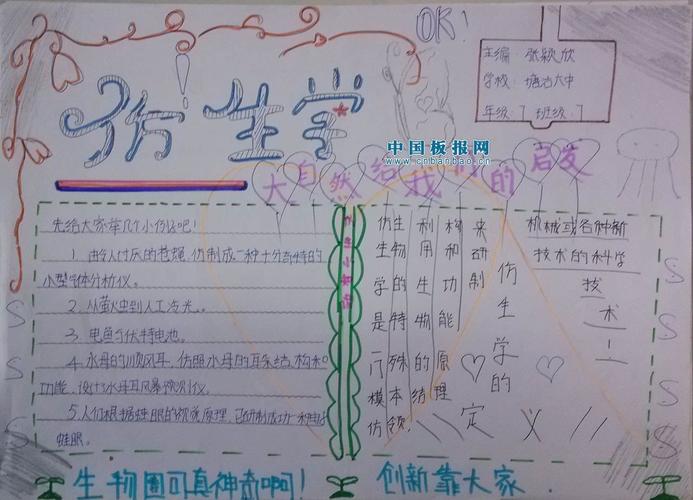 仿生学
OK!
主编 张颖欣
学校: 塘沽六中
年级: 7 班级: 7
中国板报网
www.cnbanbao.cn
大自然给我们的启发
先给大家举几个小例吧!
1. 由令人讨厌的苍蝇,仿制成一种十分奇特的
小型气体分析仪。
2. 从萤火虫到人工冷光。
3. 电鱼与伏特电池。
4. 水母的顺风耳,仿照水母的耳朵结构和
功能,设计水母耳风暴预测仪。
5. 人们根据蛙眼的视觉原理,已研制成功一种电子
蛙眼。
仿生学是一门模仿
生物的特殊本领,
利用生物的结构和功能原理
来研制
机械或各种新
技术的科学
技
术
仿生学的
定义
生物圈可真神奇啊!
创新靠大家